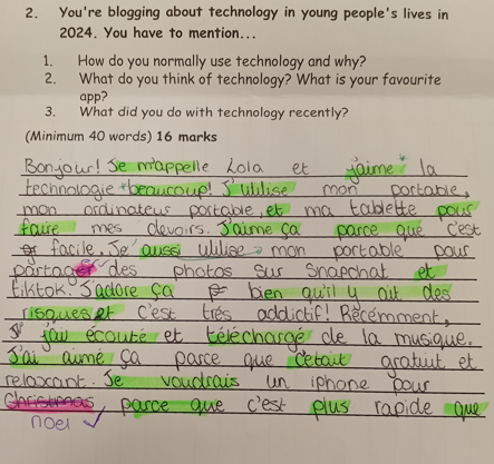 2. You're blogging about technology in young people's lives in
2024. You have to mention...
1. How do you normally use technology and why?
2. What do you think of technology? What is your favourite
app?
3. What did you do with technology recently?
(Minimum 40 words) 16 marks
Bonjour! Je m'appelle Lola et j'aime la
technologie beaucoup! J'utilise mon portable,
mon ordinateur portable, et ma tablette pour
faire mes devoirs. J'aime ça parce que c'est
facile. Je aussi utilise mon portable pour
partager des photos sur Snapchat et
tiktok. J'adore ça bien qu'il y ait des
risques et c'est très addictif! Récemment,
j'ai écouté et téléchargé de la musique.
J'ai aimé ça parce que c'était gratuit et
relaxant. Je voudrais un iphone pour
Christmas, parce que c'est plus rapide que
noel